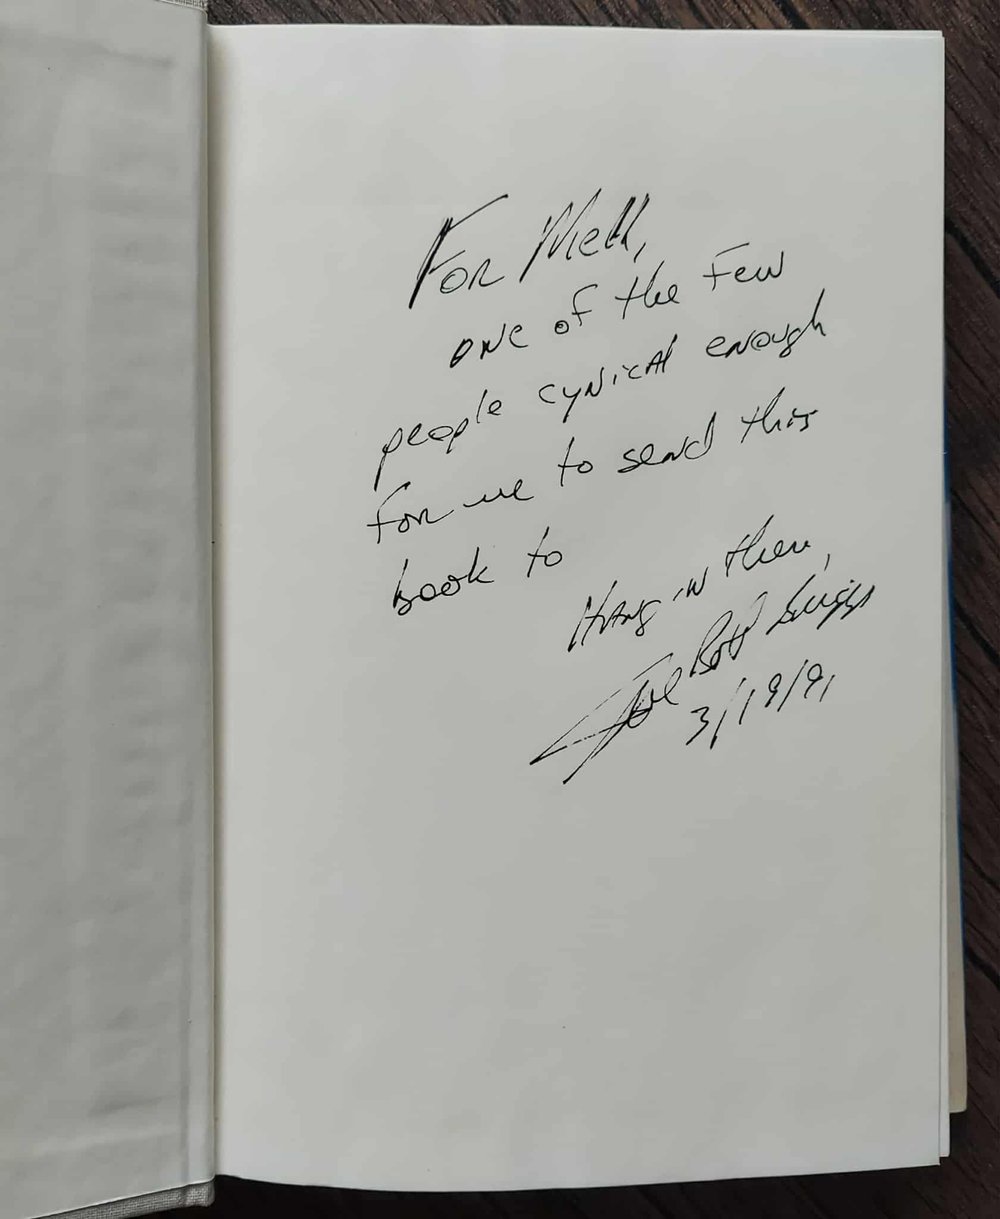 For Mell,
one of the Few
people cynical enough
for me to send this
book to
Hang in there,
Joe Bob Briggs
3/19/91